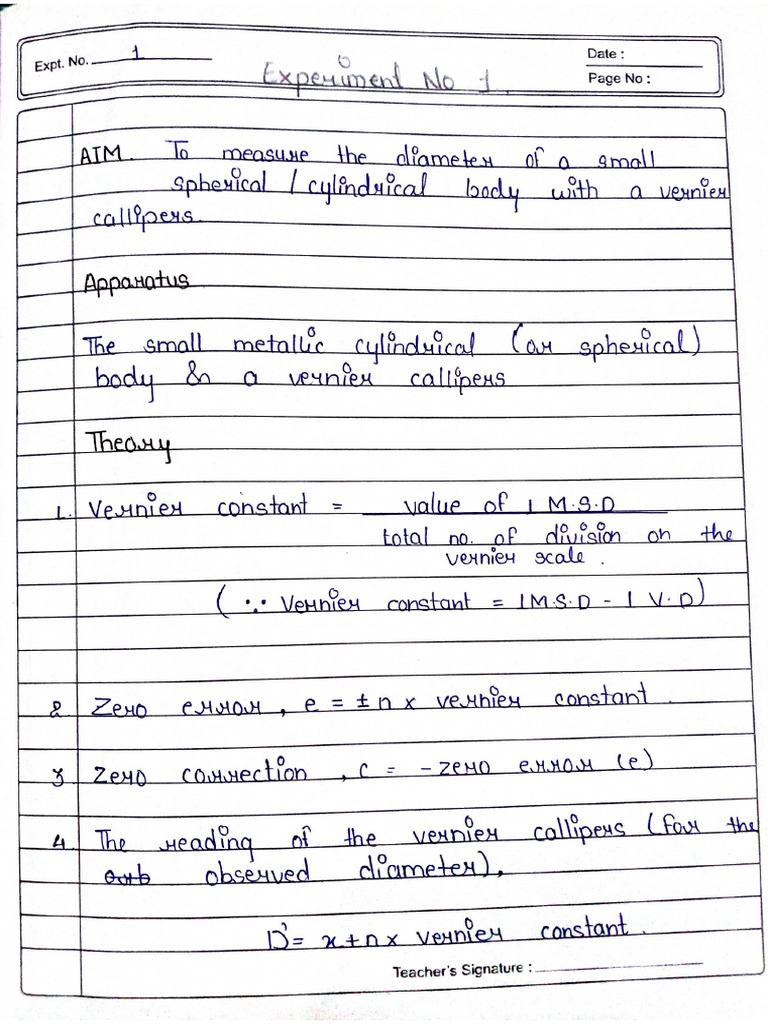 Expt. No. 1
Date :
Experiment No 1.
Page No :
AIM. To measure the diameter of a small
spherical / cylindrical body with a vernier
callipers.
Apparatus
The small metallic cylindrical (or spherical)
body & a vernier callipers
Theory
1. Vernier constant = value of 1 M.S.D
total no. of division on the
vernier scale.
(∵ Vernier constant = 1M.S.D - 1 V.D)
2 Zero error, e = ±n x vernier constant.
3 Zero correction, c = -zero error (e)
4. The reading of the vernier callipers (for the
observed diameter),
D' = x+n x vernier constant.
Teacher's Signature :